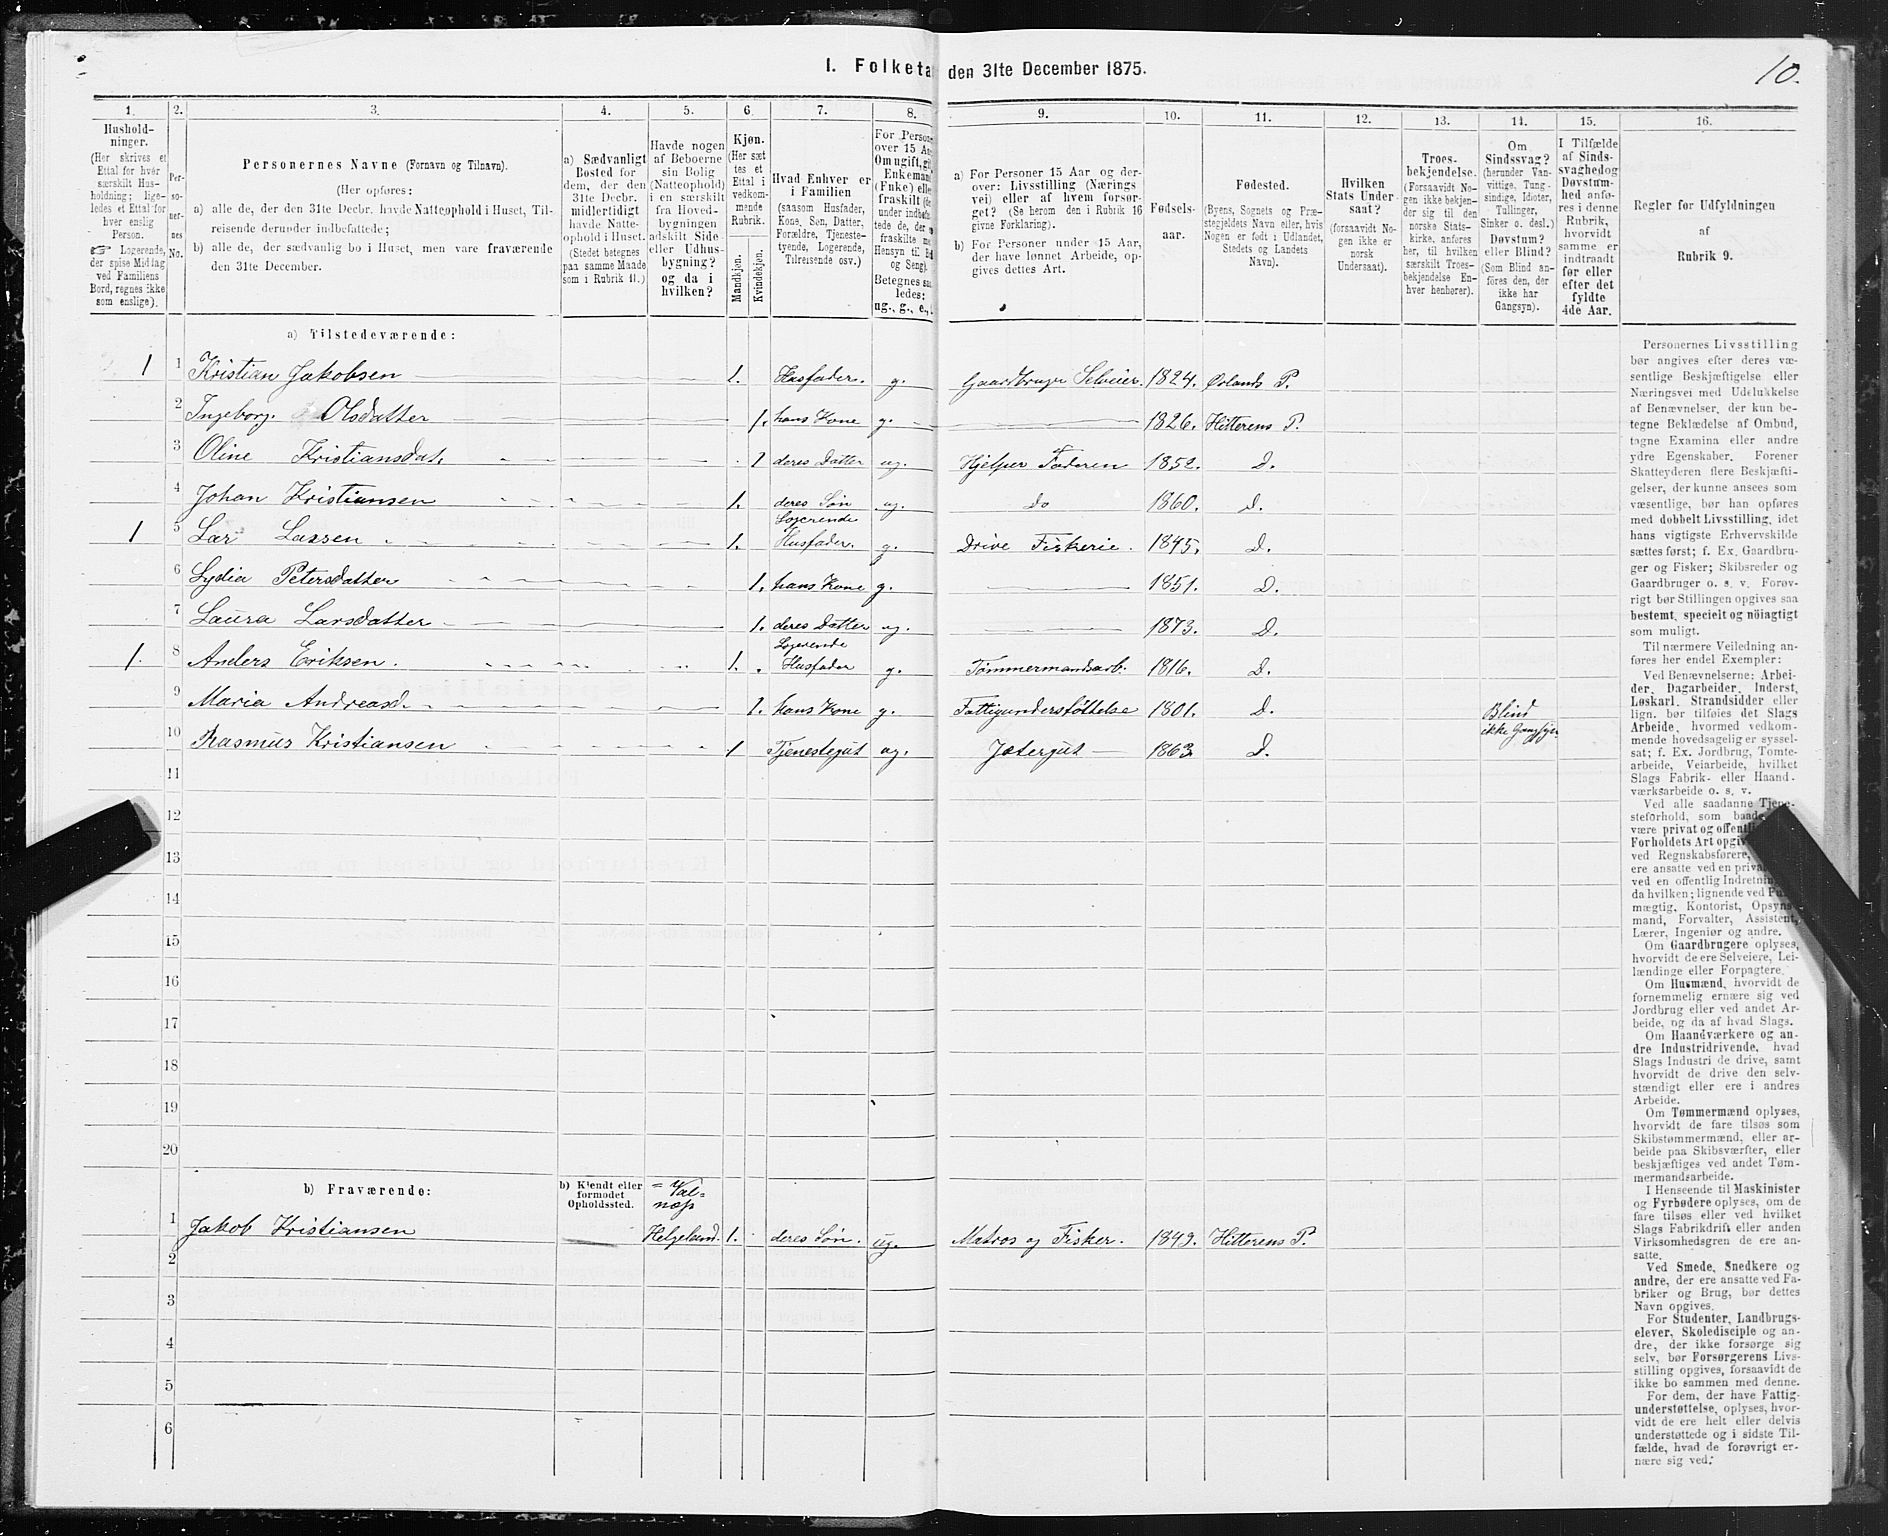 I. Folketa den 31te December 1875.
10.
1. 2. 3. 4. 5. 6 7. 8. 9. 10. 11. 12. 13. 14. 15. 16.
Hushold-
ninger.
(Her skrives et
Ettal for hver
særskilt Hus-
holdning; lige-
ledes et Ettal for
hver enslig
Person.
☞ Logerende,
der spise Middag
ved Familiens
Bord, regnes ikke
som enslige).
Per-
so-
ner-
nes
No.
Personernes Navne (Fornavn og Tilnavn).
(Her opføres:
a) alle de, der den 31te Decbr. havde Natteophold i Huset, Til-
reisende derunder indbefattede;
b) alle de, der sædvanlig bo i Huset, men vare fraværende
den 31te December.
a) Sædvanligt
Bosted for
dem, der den
31te Decbr.
midlertidigt
havde Natte-
ophold i Huset.
(Stedet betegnes
paa samme Maade
som i Rubrik 11.)
Havde nogen
af Beboerne
sin Bolig
(Natteophold)
i en særskilt
fra Hoved-
bygningen
adskilt Side-
eller Udhus-
bygning?
og da i
hvilken?
Kjøn.
(Her sæt
tes et
Ettal i
vedkom-
mende
Rubrik.
Mandkjøn.
Kvindekjøn.
Hvad Enhver er
i Familien
(saasom Husfader,
Kone, Søn, Datter,
Forældre, Tjeneste-
tyende, Logerende,
Tilreisende osv.)
For Person
over 15 Aa
Om ugift, gi
Enkemand
(Enke) elle
fraskilt (de
under indbefa
tede de, der e
fraskilte me
Hensyn til. B
og Seng).
Betegnes saa
ledes:
ug., g., e.,
a) For Personer 15 Aar og der-
over: Livsstilling (Nærings
vei) eller af hvem forsør-
get? (Se herom den i Rubrik 16
givne Forklaring).
b) For Personer under 15 Aar,
der have lønnet Arbeide, op-
gives dettes Art.
Fødsels-
aar.
Fødested.
(Byens, Sognets og Præ-
stegjeldets Navn eller, hvis
Nogen er født i Udlandet,
Stedets og Landets
Navn).
Hvilken
Stats Under
saat?
(forsaavidt No-
gen ikke er
norsk
Undersaat).
Troes-
bekjendelse.
(Forsaavidt No-
gen ikke bekjen-
der sig til den
norske Stats-
kirke, anføres
her, til hvilken
særskilt Troes-
bekjendelse En-
hver henhører).
Om
Sindssvag?
(herunder Van-
vittige, Tung-
sindige, Idioter,
Tullinger,
Sinker o. desl.)
Døvstum?
eller Blind?
(Som Blind an-
føres den, der
ikke har
Gangsyn).
I Tilfælde
af Sinds-
svaghedog
Døvstum-
hed anfø-
res i denne
Rubrik,
hvorvidt
samme er
indtraadt
før eller
efter det
fyldte
4de Aar.
Regler for Udfyldningen
af
Rubrik 9.
a) Tilstedeværende:
1 1 Kristian Jakobsen 1. Husfader. g. Gaardbruger Selveier. 1824. Ørlands P.
2 Ingeborg. Olsdatter 1. hans Kone g. 1826. Hitterens P.
3 Oline Kristiansdat. 1 deres Datter ug. Hjelper Faderen 1852. D.
4 Johan Kristiansen 1. deres Søn ug. Do 1860. D.
1 5 Lars Lassen 1. Logerende Husfader. g. Drive Fiskerie. 1845. D.
6 Lydia Petersdatter 1. hans Kone g. 1851. D.
7 Laura Larsdatter 1. deres Datter ug. 1873. D.
1. 8 Anders Eriksen. 1. Logerende Husfader g. Tømmermandsarb. 1816. D.
9 Maria Andreasd. 1. hans Kone g. Fattigunderstøttelse 1801. D. Blind ikke Gangsyn
10 Rasmus Kristiansen 1 Tjenestegut ug. Jætergut 1863 D.
11
12
13
14
15
16
17
18
19
20
b) Fraværende:
b) Kjendt eller
formodet
Opholdssted.
= Væl=
næs
1 Jakob Kristiansen Helgeland. 1. deres Søn. ug. Matros og Fisker. 1849. Hitterens P.
2
3
4
5
6
Personernes Livsstilling
bør angives efter deres væ-
sentlige Beskjæftigelse eller
Næringsvei med Udelukkelse
af Benævnelser, der kun be-
tegne Beklædelse af Ombud,
tagne Examina eller andre
ydre Egenskaber. Forener
Skatteyderen flere Beskjæfti-
gelser, der kunne ansees som
væsentlige, bør han opføres
med dobbelt Livsstilling, idet
hans vigtigste Erhvervskilde
sættes først; f. Ex. Gaardbru-
ger og Fisker; Skibsreder og
Gaardbruger o. s. v. Forøv-
rigt bør Stillingen opgives saa
bestemt, specielt og nöiagtigt
som muligt.
Til nærmere Veiledning an-
føres her endel Exempler:
Ved Benævnelserne: Arbei-
der, Dagarbeider, Inderst,
Løskarl, Strandsidder eller
lign. bør tilføies det Slags
Arbeide, hvormed vedkom-
mende hovedsagelig er syssel-
sat; f. Ex. Jordbrug, Tomte-
arbeide, Veiarbeide, hvilket
Slags Fabrik- eller Haand-
værksarbeide o. s. v.
Ved alle saadanne Tjene-
steforhold, som baade
være privat og offentli
Forholdets Art opgiv
ved Regnskabsførere,
ere ansatte ved en priva
ved en offentlig Indretnin
da hvilken; lignende ved Fu
mægtig, Kontorist, Opsyns
mand, Forvalter, Assistent,
Lærer, Ingeniør og andre.
Om Gaardbrugere oplyses,
hvorvidt de ere Selveiere, Lei-
lændinge eller Forpagtere.
Om Husmænd, hvorvidt de
fornemmelig ernære sig ved
Jordbrug eller ved andet Ar-
beide, og da af hvad Slags.
Om Haandværkere og an-
dre Industridrivende, hvad
Slags Industri de drive, samt
hvorvidt de drive den selv-
stændigt eller ere i andres
Arbeide.
Om Tømmermænd oplyses,
hvorvidt de fare tilsøs som
Skibstømmermænd, eller ar-
beide paa Skibsværfter, eller
beskjæftiges ved andet Tøm-
mermandsarbeide.
I Henseende til Maskinister
og Fyrbødere oplyses, om de
fare tilsøs eller ved hvilket
Slags Fabrikdrift eller anden
Virksomhedsgren de ere an-
satte.
Ved Smede, Snedkere og
andre, der ere ansatte ved Fa-
briker og Brug, bør dettes
Navn opgives.
For Studenter, Landbrugs-
elever, Skoledisciple og an-
dre, der ikke forsørge sig
selv, bør Forsørgerens Livs-
stilling opgives, forsaavidt de
ikke bo sammen med denne.
For dem, der have Fattig-
understøttelse, oplyses, hvor-
vidt de ere helt eller delvis
understøttede og i sidste Til-
fælde, hvad de forøvrigt er-
nære sig ved.